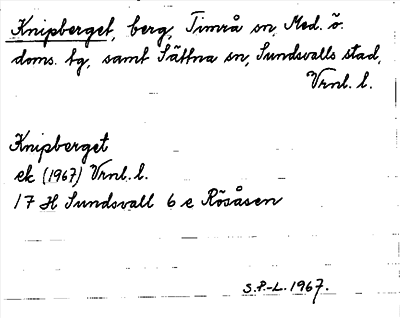 Knipberget, berg, Timrå sn, Med. ö.
doms. tg, samt Sättna sn, Sundsvalls stad,
Vrnl. l.
Knipberget
ek (1967) Vrnl. l.
17 H Sundsvall 6 e Rösåsen
S.P-L. 1967.